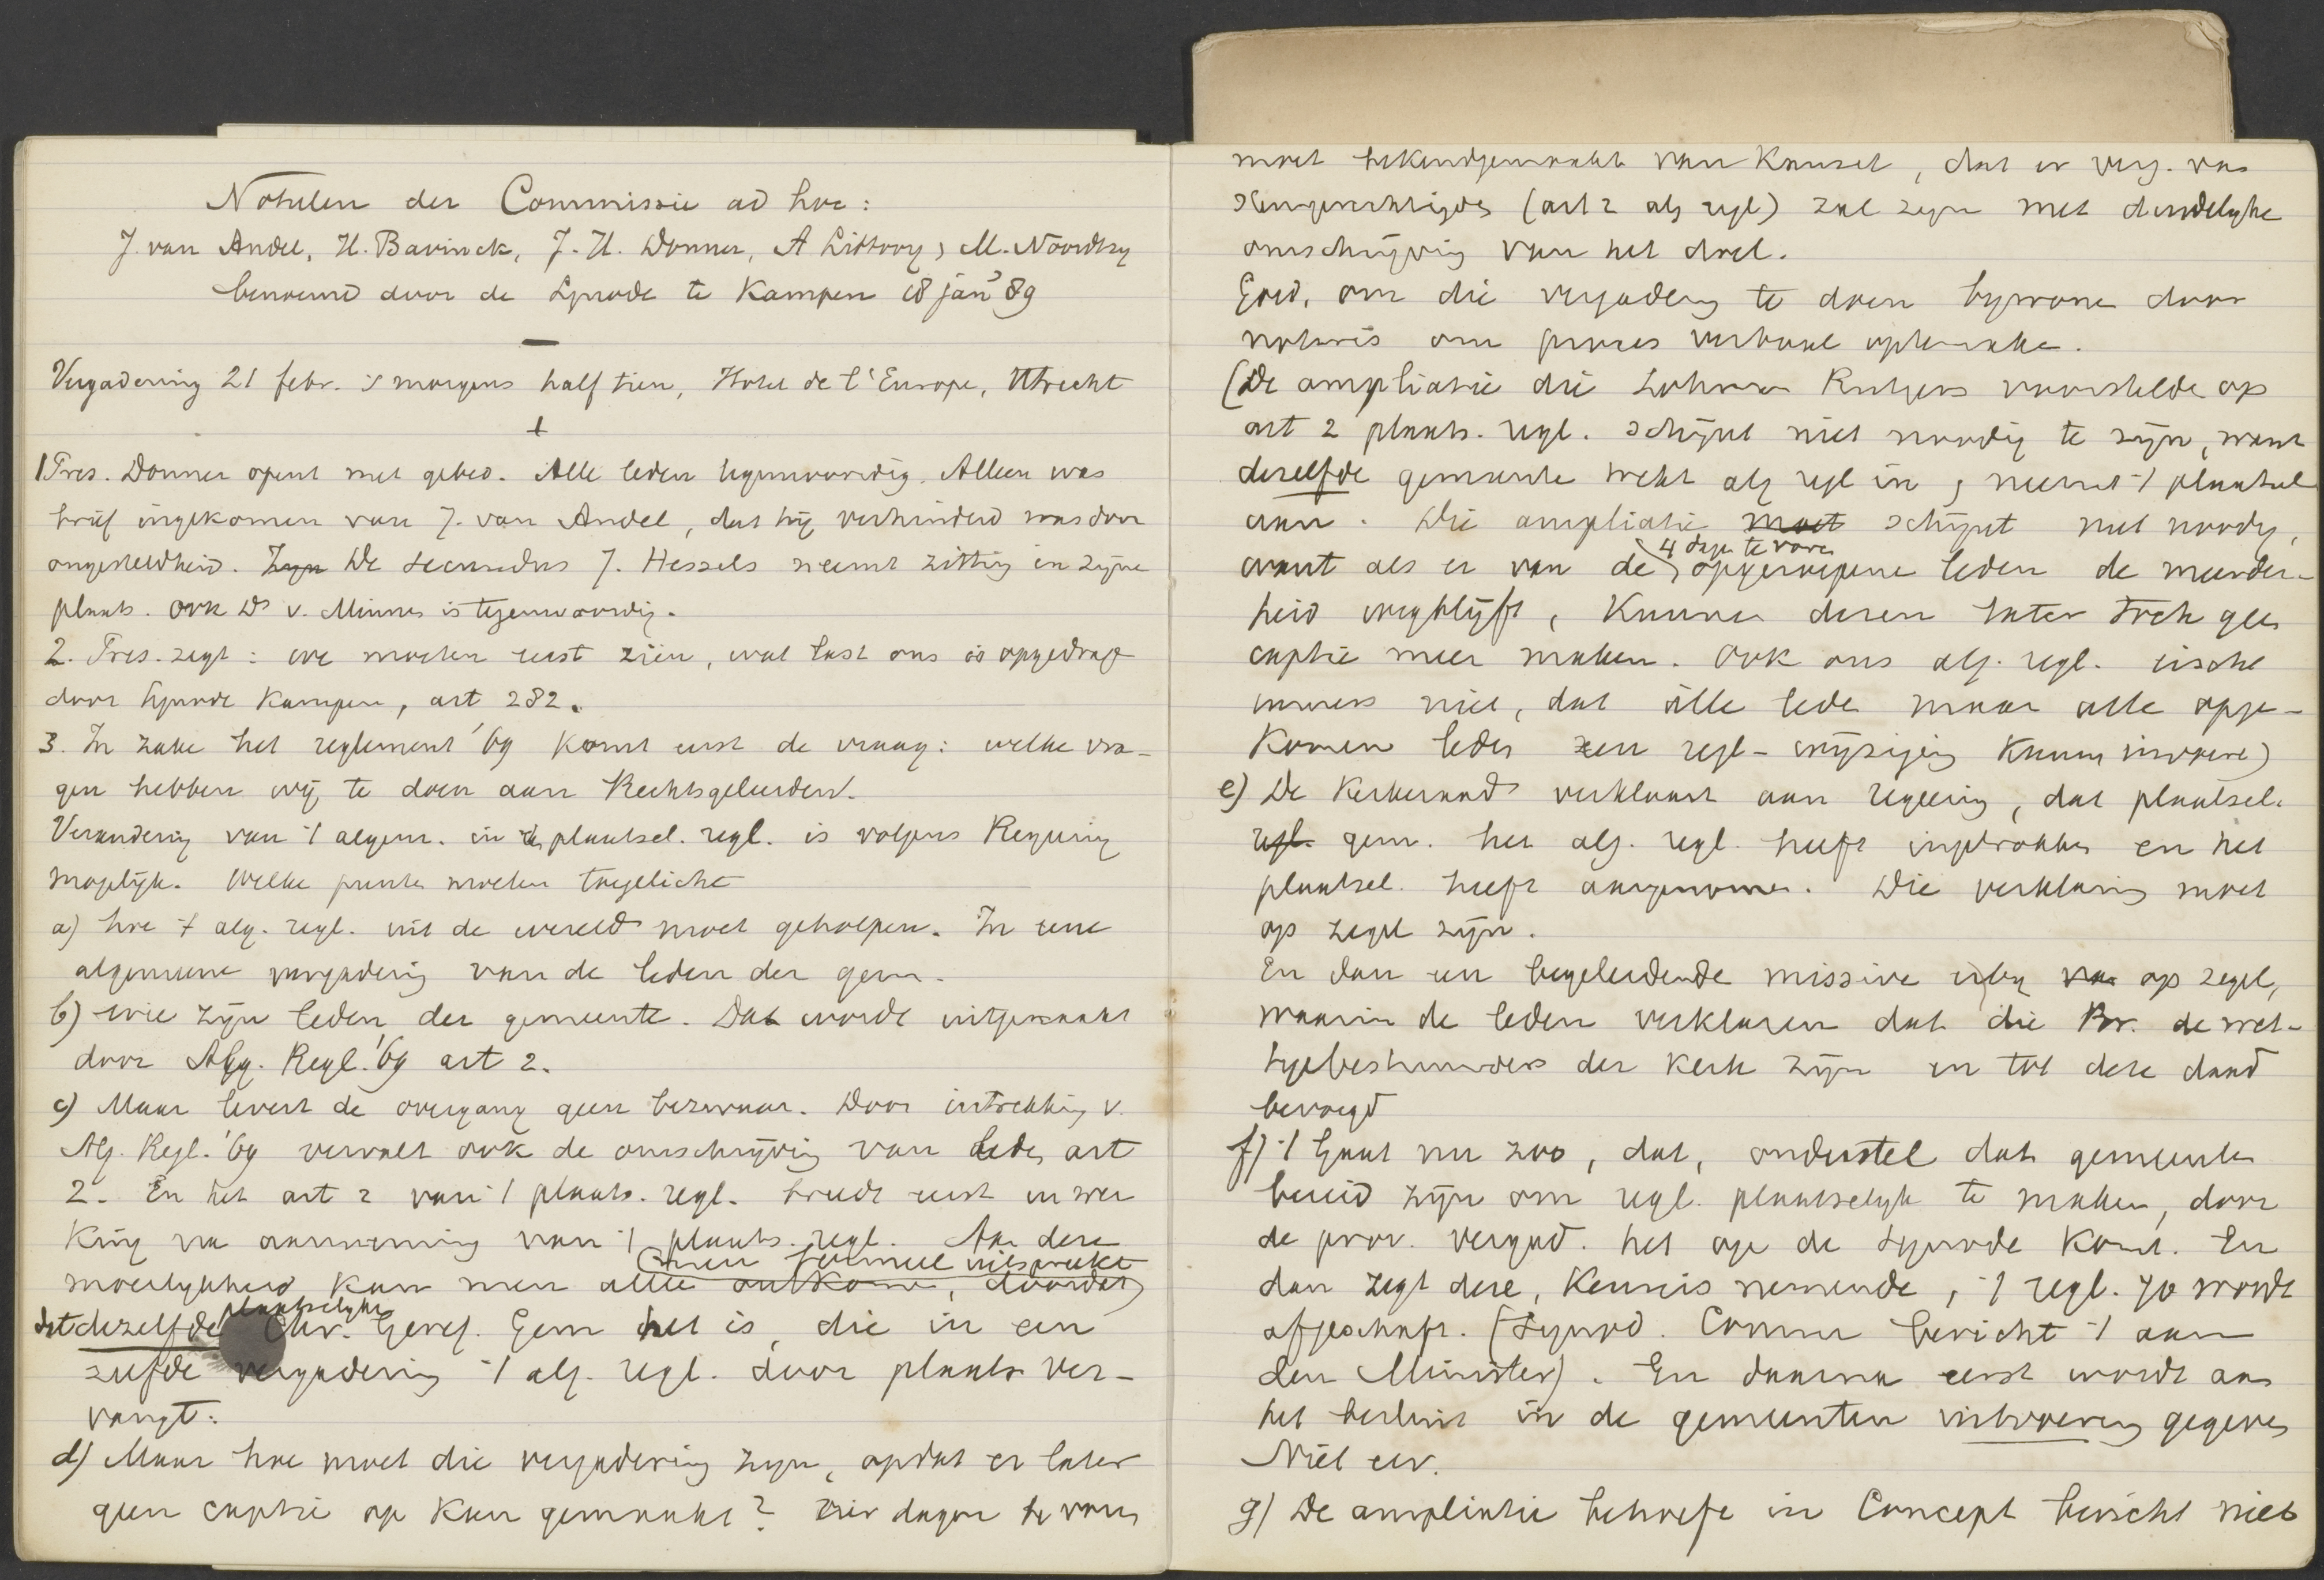 Notulen der Commissie ad hoc:
J. van Andel, H. Bavinck, J. H. Donner, A Littooy, M. Noordtzy
benoemd door de Synode te Kampen 18 jan 89
Vergadering 21 febr. 's morgens half tien, Hotel de l'Europe, Utrecht
1 Pres. Donner opent met gebed. Alle leden tegenwoordig. Alleen was
brief ingekomen van J. van Andel, dat hij verhinderd was door
ongesteldheid. Zyn De secundus J. Hessels neemt zitting in zijne
plaats. Ook Ds v. Minnen is tegenwoordig.
2. Pres. zegt: we moeten eerst zien, wat last ons is opgedrag
door Synode Kampen, art 282.
3. In zake het reglement '69 komt eerst de vraag: welke vra-
gen hebben wij te doen aan Rechtsgeleerden.
Verandering van 't algem. in plaatsel. regl. is volgens Regering
mogelijk. Welke punten moeten toegelicht
a) hoe 't alg. regl. uit de wereld moet geholpen. In eene
algemeene vergadering van de leden der gem.
b) wie zijn leden der gemeente. Dat wordt uitgemaakt
door Alg. Regl. '69 art 2.
c) Maar levert de overgang geen bezwaar. Door intrekking v.
Alg. Regl. '69 vervalt ook de omschrijving van leden art
2. En het art 2 van 't plaats. regl. treedt eerst in wer
king na aanneming van 't plaats. regl. Aan deze
men formeel uitspreekt
moeilykheid kan men alle ontkomen, doordat
plaatselyke
dat dezelfde Chr. Geref. Gem het is, die in een
zelfde vergadering 't alg. regl. door plaats ver-
vangt.
d) Maar hoe moet die vergadering zijn, opdat er later
geen captie op kan gemaakt? Vier dagen te voren
moet bekendgemaakt van kansel, dat er verg. van
stemgerechtigden (art 2 alg regl) zal zijn met duidelyke
omschrijving van het doel.
Goed, om die vergadering te doen bywonen door
notaris om proces verbaal optemaken.
(De ampliatie die Lohman Rutgers voorstelde op
art 2 plaats. regl. schijnt niet noodig te zijn, want
dezelfde gemeente trekt alg regl in, neemt 't plaatsel
aan. Die ampliatie moet schijnt niet noodig,
4 dagen te voren
want als er van de opgeroepene leden de meerder-
heid wegblijft, kunnen dezen later toch geen
captie meer maken. Ook ons alg. regl. eischt
immers niet, dat alle leden maar alle opge-
komen leden een regl-wijziging kunnen invoeren)
e) De Kerkeraad verklaart aan regeering, dat plaatsel.
regl. gem. het alg. regl. heeft ingetrokken en het
plaatsel. heeft aangenomen. Die verklaring moet
op zegel zijn.
En dan een begeleidende missive erby op zegel,
waarin de leden verklaren dat die Br. de wet-
tigebestuurders der Kerk zijn en tot deze daad
bevoegd
f) 't Gaat nu zoo, dat, onderstel dat gemeenten
bereid zijn om regl. plaatselyk te maken, door
de prov. vergad. het op de Synode komt. En
dan zegt deze, kennis nemende, 't regl. 70 wordt
afgeschaft. (Synod. Comm bericht 't aan
den Minister). En daarna eerst wordt aan
het besluit in de gemeenten uitvoering gegeven
Niet eer.
g) De ampliatie behoefte in Concept bericht niet